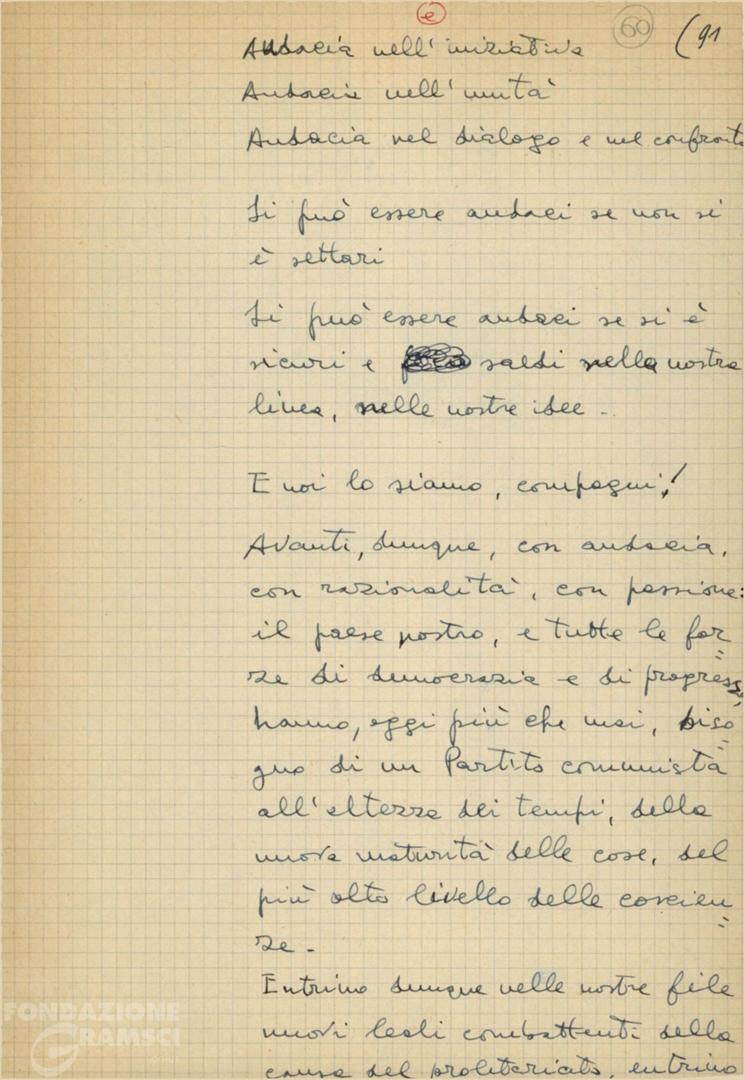 e
60
(91
Audacia nell'iniziativa
Audacia nell'unità
Audacia nel dialogo e nel confronto
Si può essere audaci se non si
è settari
Si può essere audaci se si è
sicuri e saldi nella nostra
linea, nelle nostre idee -
E noi lo siamo, compagni!
Avanti, dunque, con audacia,
con razionalità, con passione:
il paese nostro, e tutte le for=
ze di democrazia e di progresso,
hanno, oggi più che mai, biso=
gno di un Partito comunista
all'altezza dei tempi, della
nuova maturità delle cose, del
più alto livello delle coscien=
ze -
Entrino dunque nelle nostre file
nuovi leali combattenti della
causa del proletariato, entrino
FONDAZIONE
GRAMSCI